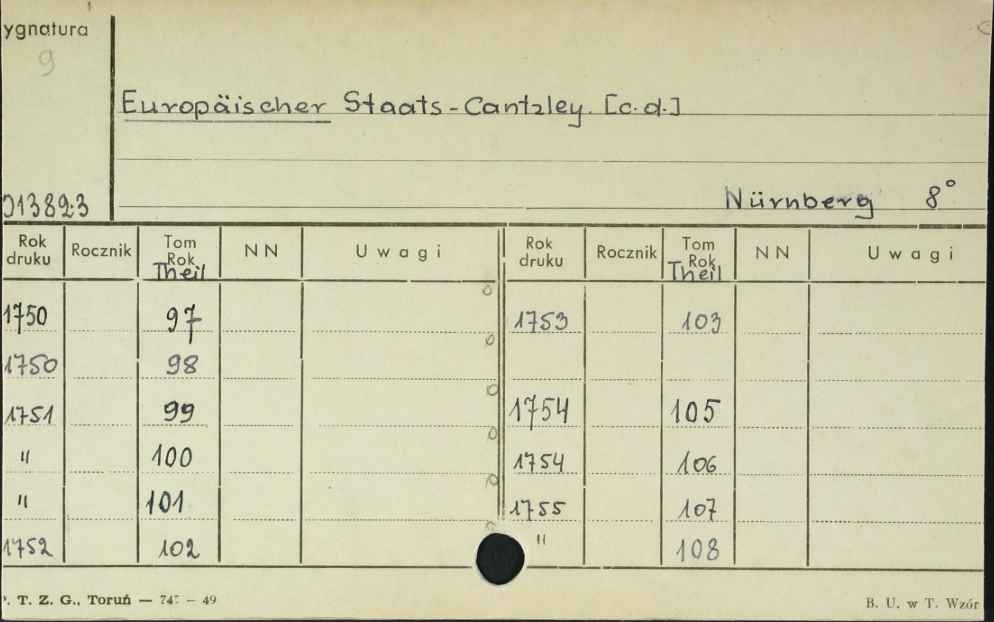 ygnatura
9
Europäischer Staats-Cantzley. [c.d.]
013893
Nürnberg 8°
Rok druku Rocznik Tom Rok Theil NN Uwagi Rok druku Rocznik Tom Rok Theil NN Uwagi
1750 97 1753 103
1750 98
1751 99 1754 105
" 100 1754 106
" 101 1755 107
1752 102 " 108
. T. Z. G., Toruń — 49
B. U. w T. Wzór